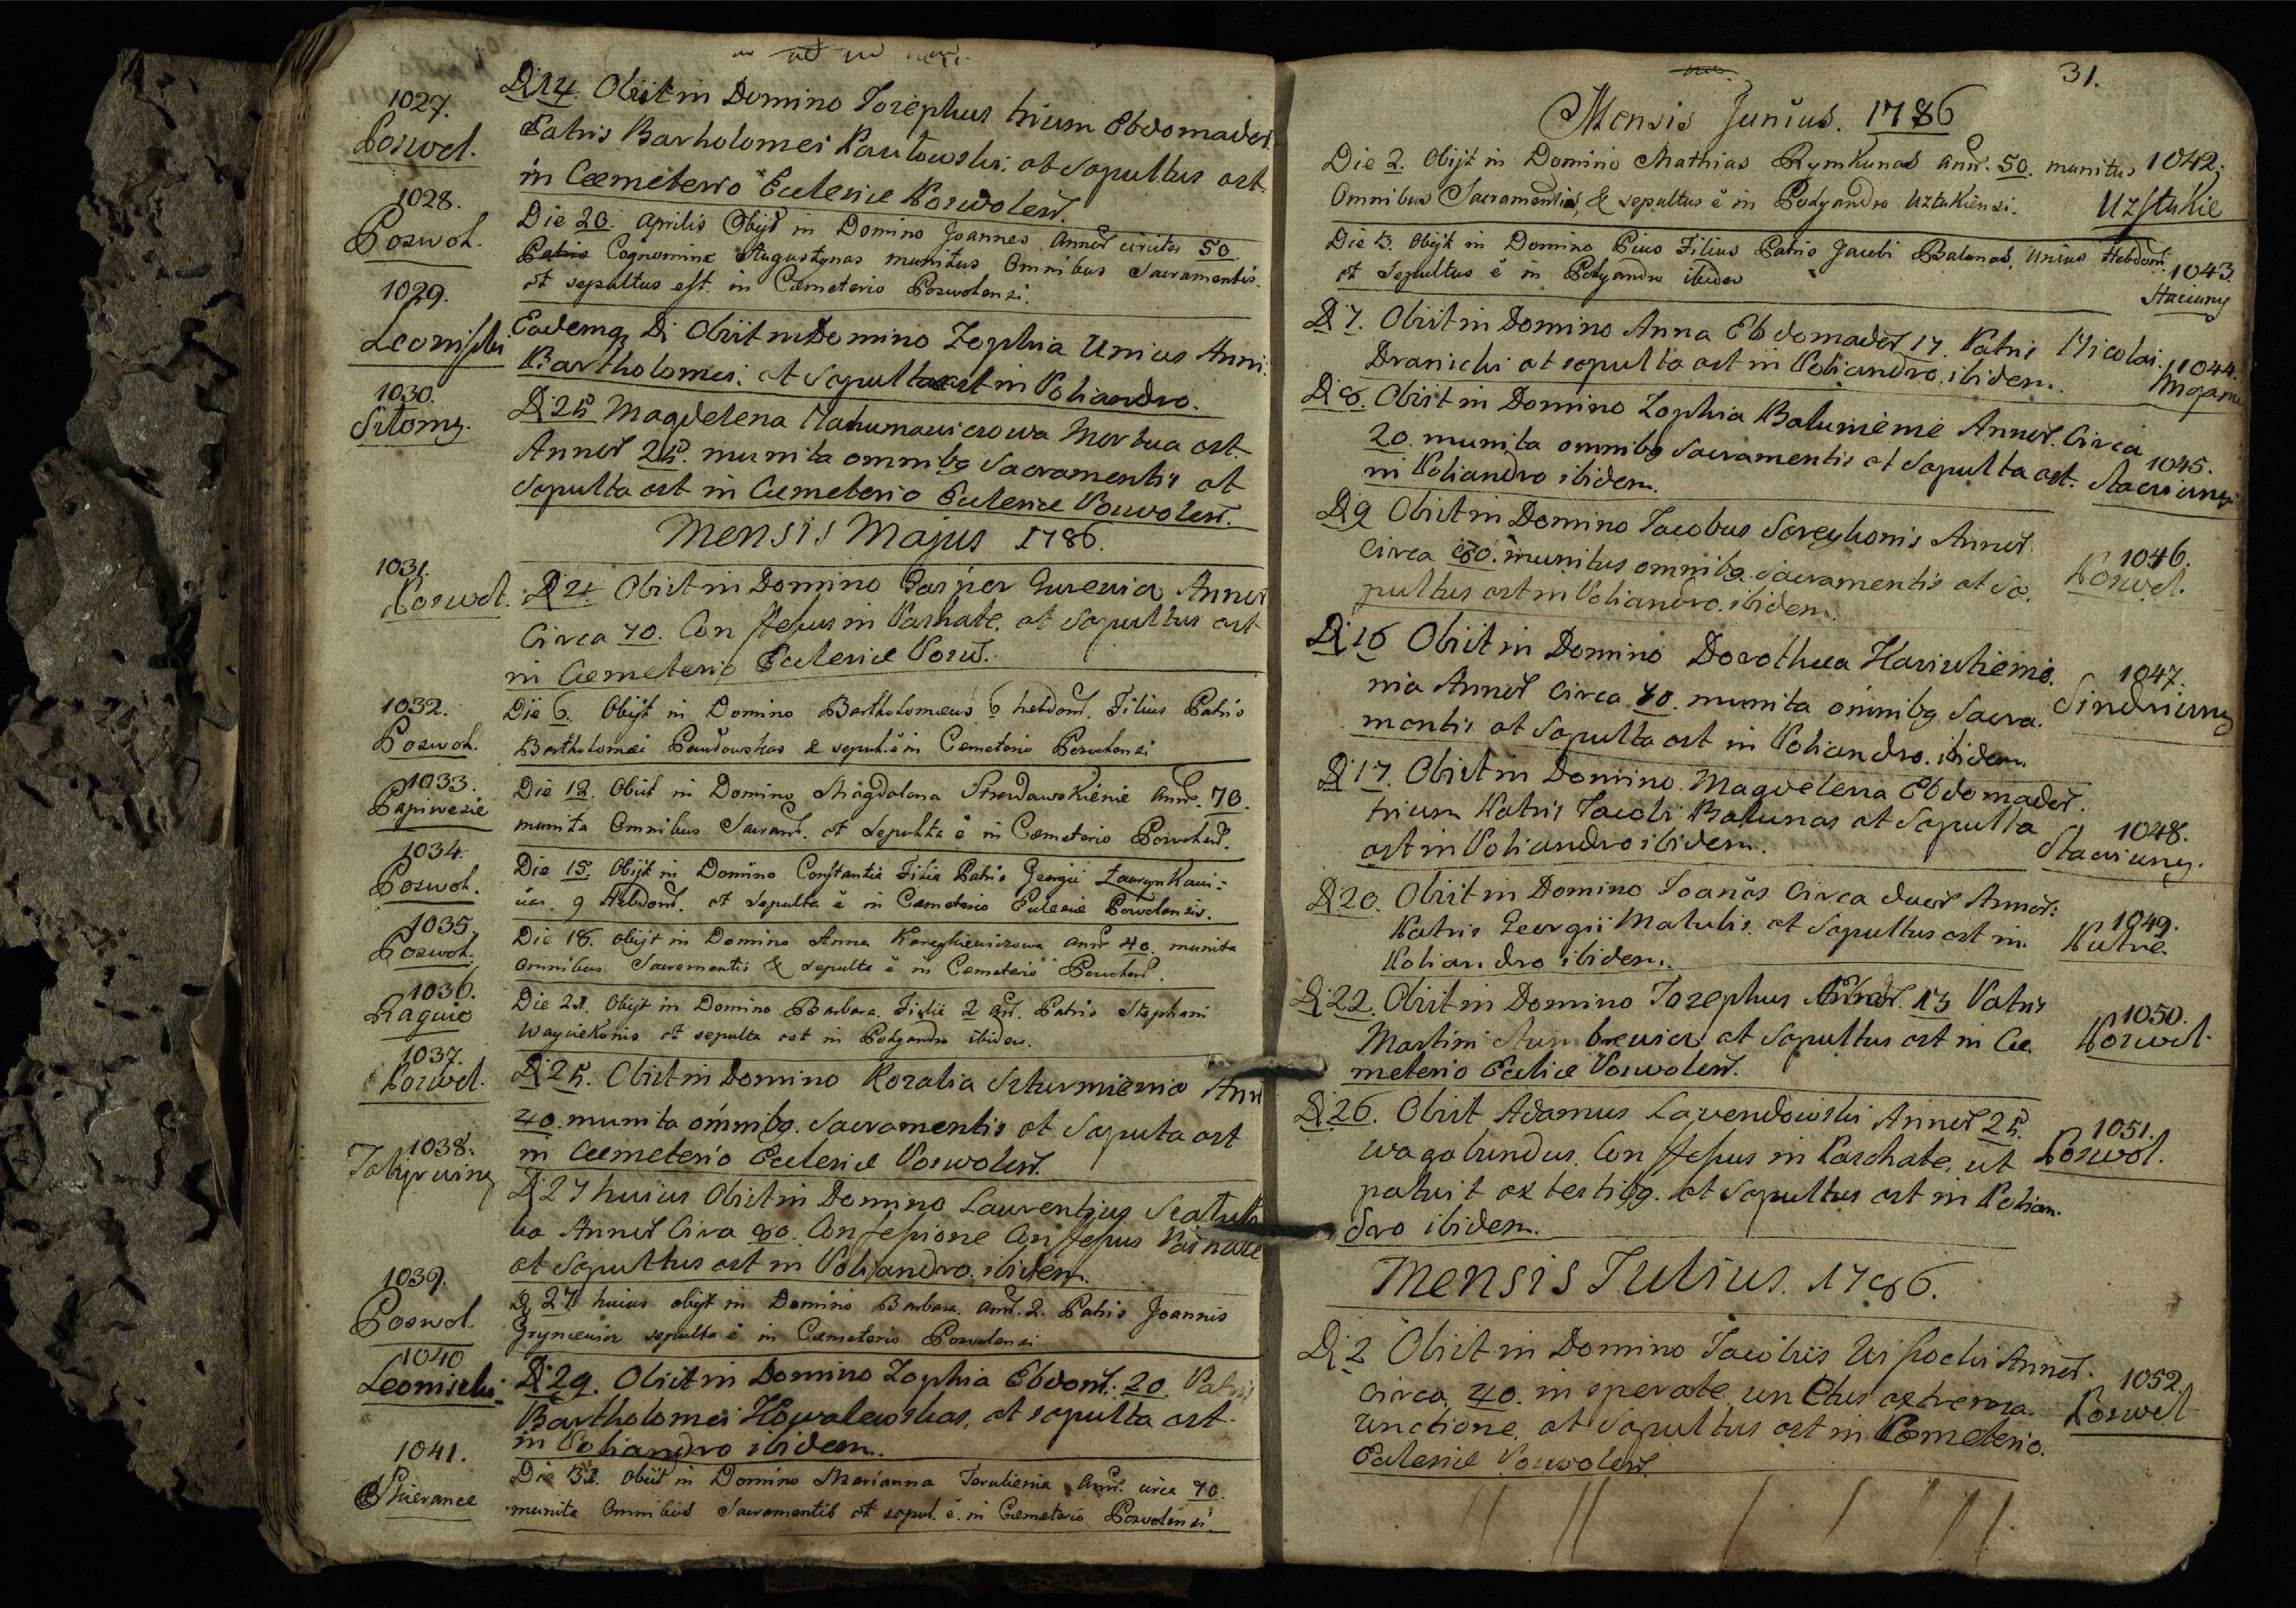 1027.
Poswol.
Di 14. Obiit in Domino Iozephus trium Ebdomader
Patris Bartholomei Pautowski. et Sepultus est
in Cæmeterio Eclesiæ Poswoleñ.
1028.
Poswol.
Die 20. Aprilis Obijt in Domino Joannes Annor circiter 50
Patris Cognomine Augustynas munitus Omnibus Sacramentis
et sepultus est in Cæmeterio Poswolensi.
1029.
Leoniszki
Eademq Di Obiit in Domino Zophia Unius Anni
Bartholomei. et Sepulta est in Poliandro.
1030.
Sitomy.
Di 25 Magdelena Mahumawiczowa Mortua est
Annor 25. munita omnibq Sacramentis et
Sepulta est in Cæmeterio Eclesiæ Poswoleñ.
Mensis Majus 1786.
1031.
Poswol.
Di 4 Obiit in Domino Gasper Gurewicz Annor
Circa 70. Confessus in Paschate. et Sepultus est
in Cæmeterio Eclesiæ Posw.
1032.
Poswol.
Die 6. Obijt in Domino Bartholomæus 6 hebdom. Filius Patris
Bartholomæi Pautowskas & sepul. ë in Cæmeterio Poswolensi
1033.
Papiwezie
Die 12. Obiit in Domino Magdalana Strowdawskienie Annr. 70.
munita Omnibus Sacram. et Sepulta ë in Cæmeterio Poswolens.
1034.
Poswol.
Die 15. Obijt in Domino Constantia Filia Patris Georgii Lawrynkawi=
cias. 9 Hebdom. et Sepulta ë in Cæmeterio Eclesiæ Poswolensis.
1035.
Poswol.
Die 18. Obijt in Domino Anna Kareghiewiczowa Annr 40. munita
Omnibus Sacramentis & sepulta ë in Cæmeterio Poswolens.
1036.
Raguie
Die 21. Obijt in Domino Barbara Filia 2 an. Patris Stephani
Wayciekonis et sepulta est in Polyandro ibidem.
1037.
Poswol.
Di 25. Obiit in Domino Rozalia Szturmienia Ann
40. munita omnibq. Sacramentis et Sepulta est
in Cæmeterio Eclesiæ Poswoleñ.
1038.
Di 27 huius Obiit in Domino Laurentius
Annor Circa 80. Confessione Confessus Paschate
et Sepultus est in Poliandro ibidem.
1039.
Poswol.
Di 27 huius obijt in Domino Barbara. Ann. 2. Patris Joannis
Gryncewicz sepulta ë in Cæmeterio Poswolensi
1040
Leoniszki.
Di 29. Obiit in Domino Zophia Ebdom. 20 Patris
Bartholomei Kowalewskas. et sepulta est
in Poliandro ibidem.
1041.
Die 31. Obiit in Domino Marianna Jarulienia Ann. circa 70.
munita Omnibus Sacramentis et sepul. ë in Cæmeterio Poswolensi
31.
Mensis Junius. 1786
Die 2. Obijt in Domino Mathias Rymkunas Annr. 50. munitus
Omnibus Sacramentis, & sepultus ë in Polyandro Uztukiensi.
1042.
Uzstukie
Die 3. Obijt in Domino Pius Filius Patris Jacobi Balunas. Unius Hebdom.
et Sepultus ë in Polyandro ibidem
1043
Staciuny
Di 7. Obiit in Domino Anna Ebdomader 17. Patris Nicolai
Dranicki et sepulta est in Poliandro. ibidem.
1044.
Di 8. Obiit in Domino Zophia Balunienie Annor. Circa
20. munita omnibq Sacramentis et Sepulta est.
in Poliandro ibidem.
1045.
Staciuny
Di 9 Obiit in Domino Iacobus Sereykonis Annor
Circa 80. munitus omnibq. Sacramentis et Se.
pultus est in Poliandro. ibidem.
1046.
Poswol.
Di 16 Obiit in Domino Dorothea Kariutienie.
nia Annor Circa 70. munita omnibq Sacra.
mentis et Sepulta est in Poliandro. ibidem.
1047.
Sindriuny
Di 17. Obiit in Domino. Magdelena Ebdomader.
trium Patris Iacobi Balunas et Sepulta
est in Poliandro ibidem.
1048.
Staciuny.
Di 20. Obiit in Domino Ioañes Circa duor Annor:
Patris Georgii Matulis. et Sepultus est in
Poliandro ibidem.
1049.
Di 22. Obiit in Domino Iozephus 13 Patris
Martini et Sepultus est in Cæ
meterio Eclesiæ Poswoleñ.
1050.
Poswol.
Di 26. Obiit Adamus Lavendowski Annor 25.
wagabundus. Confessus in Paschate. ut
patuit ex testibq. et Sepultus est in Polian.
dro ibidem.
1051.
Poswol.
Mensis Iulius. 1786.
Di 2 Obiit in Domino Iacobus Annor.
Circa 40. insperate unctus extrema
unctione. et Sepultus est in Cæmeterio.
Eclesiæ Poswoleñ.
1052.
Poswol